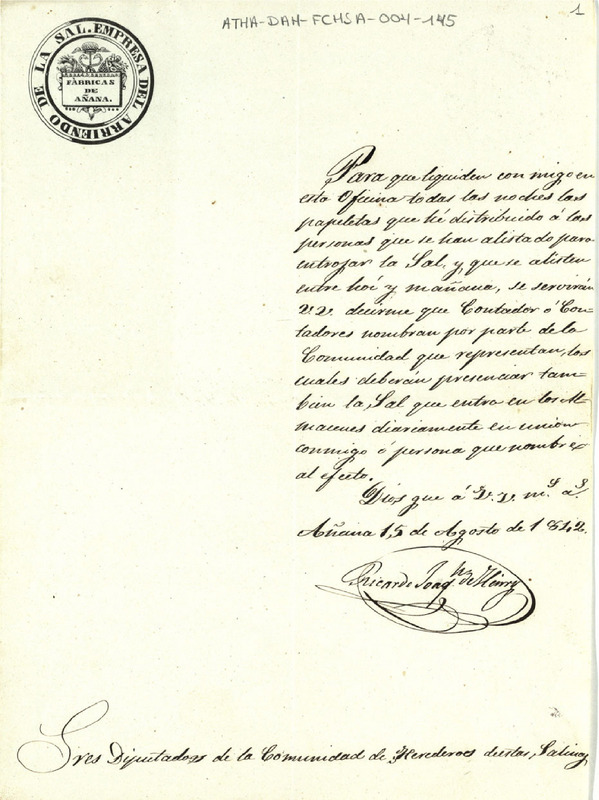 ATHA-DAH-FCHSA-004-145
1
EMPRESA DEL ARRIENDO DE LA SAL.
FÁBRICAS
DE
AÑANA.
Para que liquiden con migo en
esta Oficina todas las noches las
papeletas que hé distribuido á las
personas que se han alistado para
entrojar la Sal, y que se alisten
entre hoi y mañana, se servirán
V.V. decirme que Contador ó Con-
tadores nombran por parte de la
Comunidad que representan, los
cuales deberán presenciar tam-
bien la Sal que entra en los Al-
macenes diariamente en union
conmigo ó persona que nombre
al efecto.
Dios gue á V.V. ms as
Añana 15 de Agosto de 1842.
Ricardo Joaqn de
Sres Diputados de la Comunidad de Herederos de estas Salinas